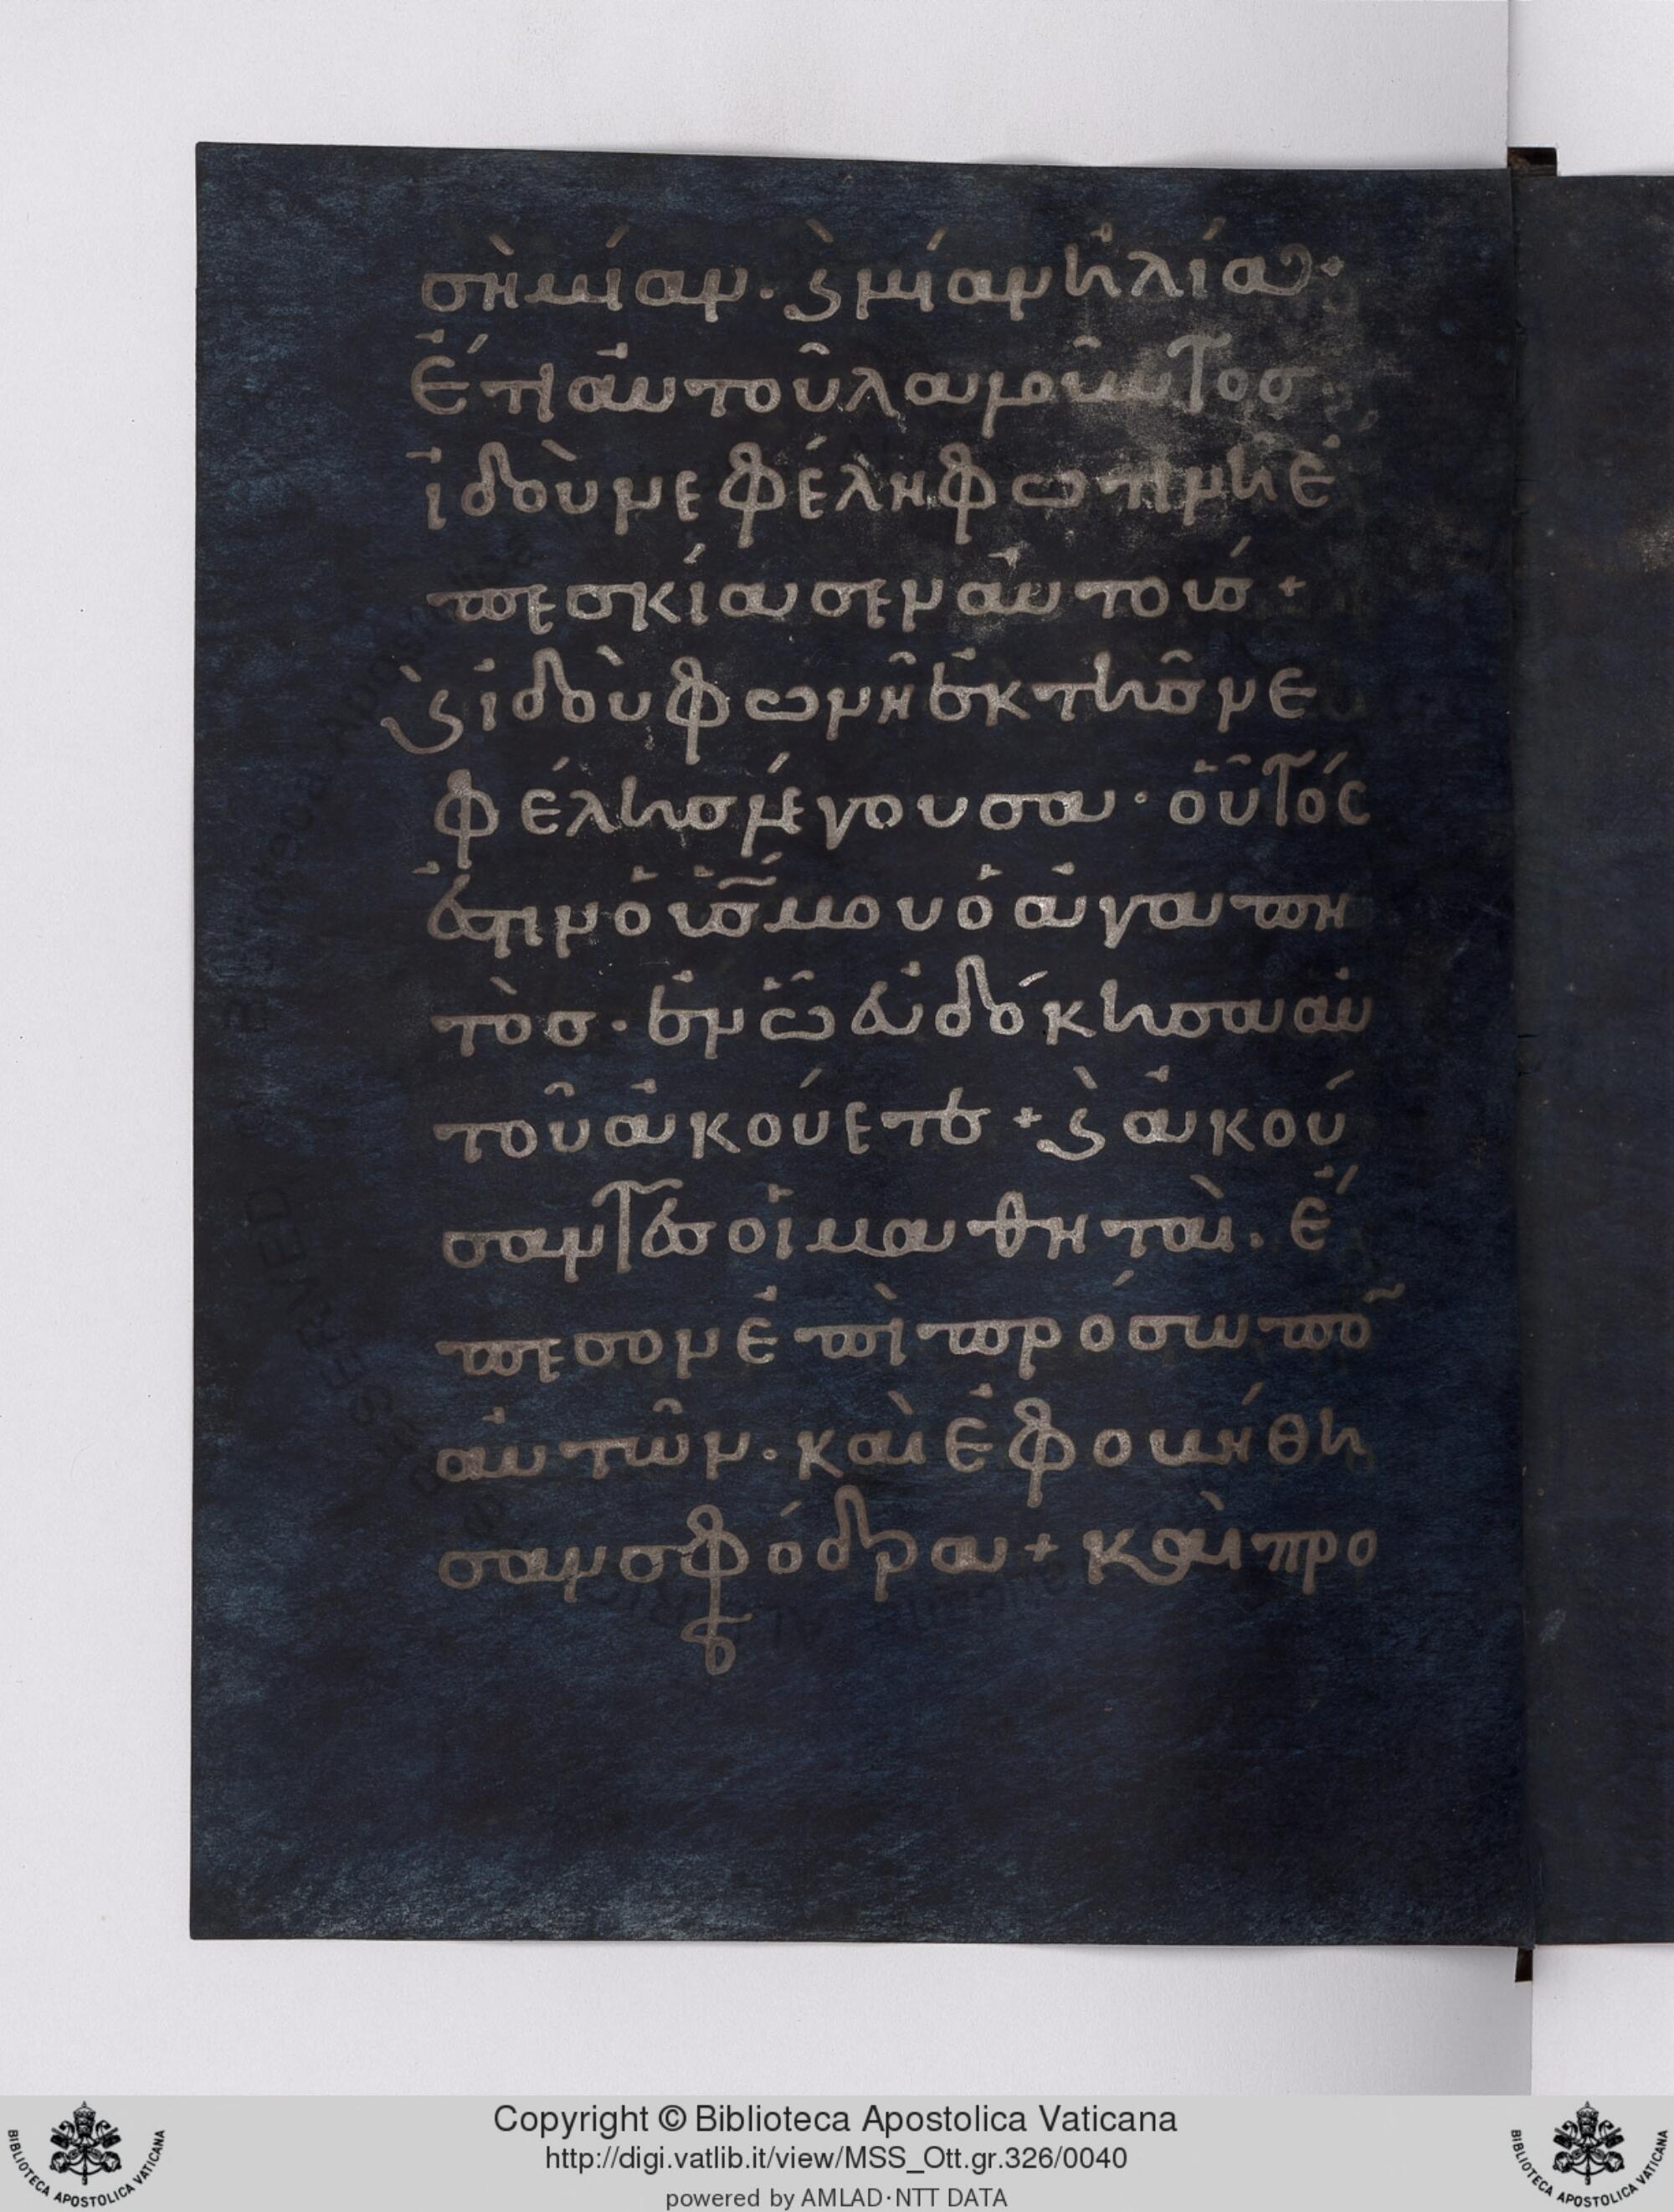 σῆ μίαν. ϗ μίαν ἠλία·
ἔτι αὐτοῦ λαλοῦντος·
ἰδοὺ νεφέλη φωτινὴ ἐ
πεσκίασεν αὐτούσ +
ϗ ἰδοὺ φωνὴ ἐκ τῆσ νε
φέλησ λέγουσα· οὗτός
ἐστιν ὁ υἱ̅σ̅ μου ὁ ἀγαπη
τὸσ. ἐν ᾧ εὐδόκησα αὐ
τοῦ ἀκούετε + ϗ ἀκού
σαντεσ οἱ μαθηταὶ. ἔ
πεσον ἐπὶ πρόσωπο̅
αὐτῶν. καὶ ἐφοβήθη
σαν σφόδρα + καὶ προ
Copyright © Biblioteca Apostolica Vaticana
http://digi.vatlib.it/view/MSS_Ott.gr.326/0040
powered by AMLAD·NTT DATA
BIBLIOTECA APOSTOLICA VATICANA
BIBLIOTECA APOSTOLICA VATICANA